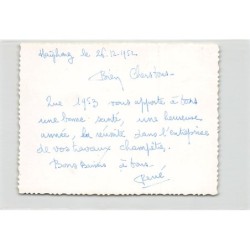 Haïphong le 25.12.1952
Bien Chers tous
Que 1953 vous apporte à tous
une bonne santé, une heureuse
année, la réussite dans l'entreprise
de vos travaux champêtres.
Bons Baisers à tous.
René